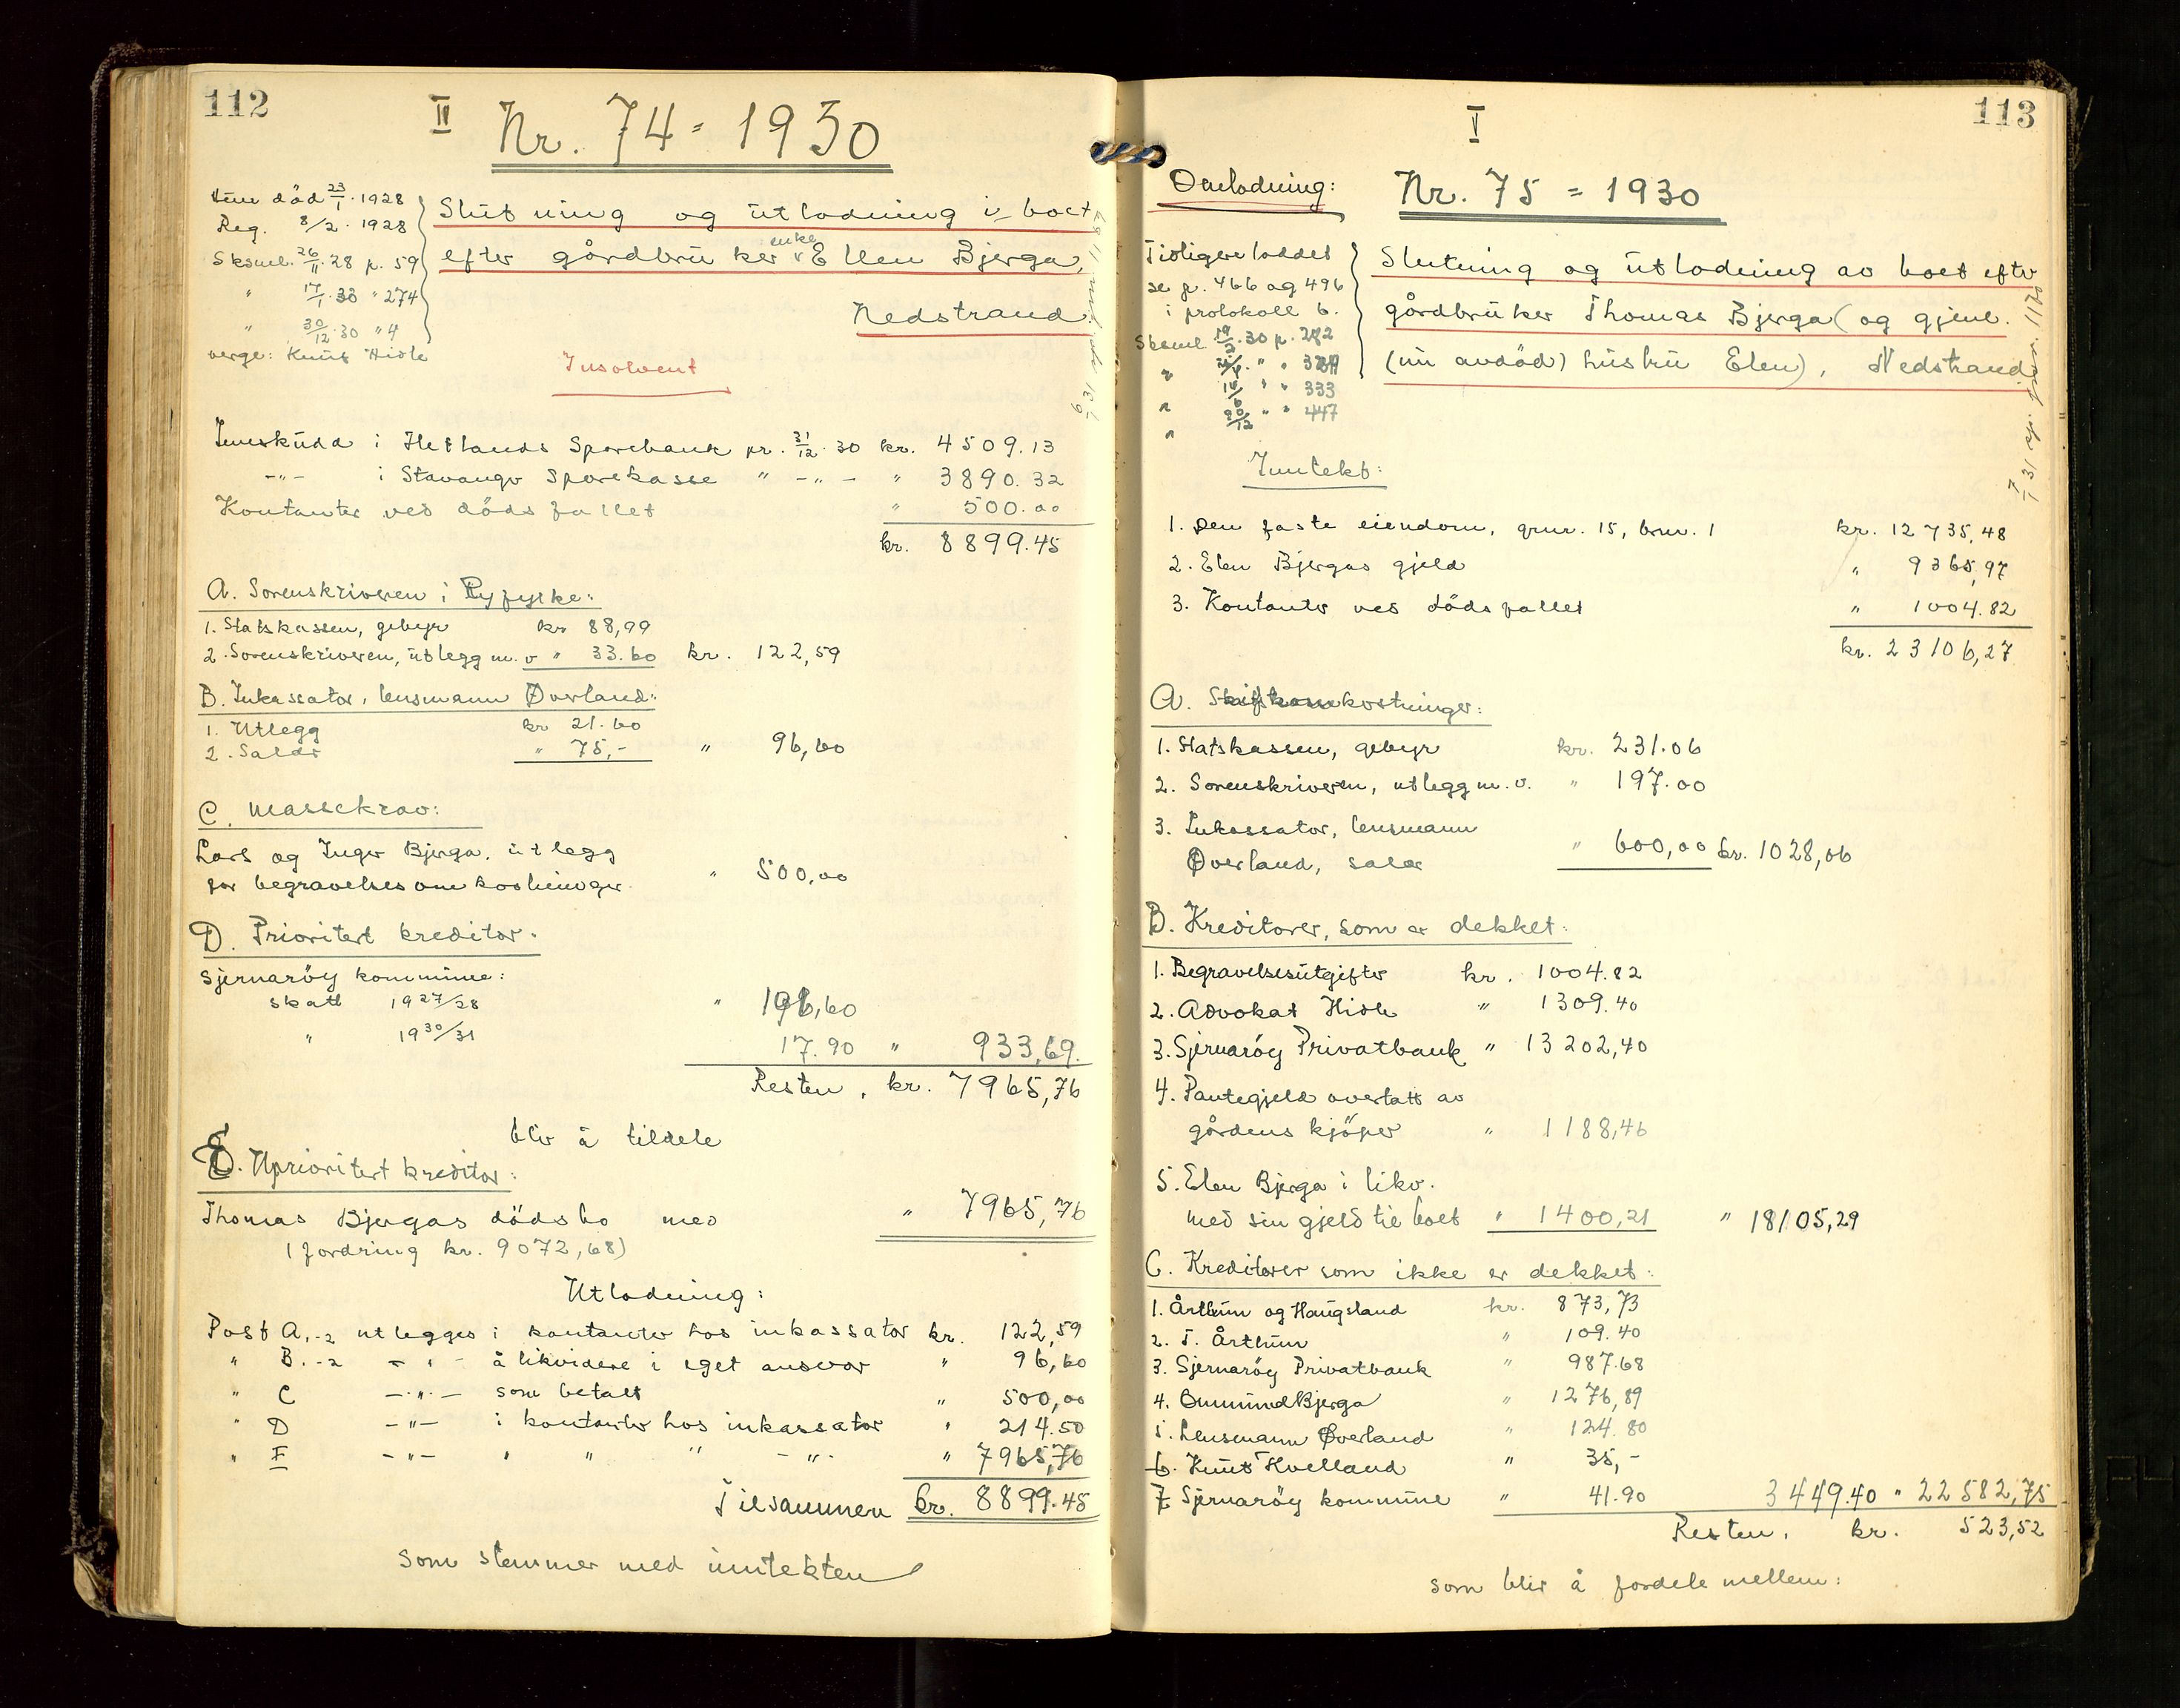 112
II Nr. 74 = 1930
død 23/1. 1928
Reg. 8/2. 1928
Sksml. 26/11. 28 p. 59
" 17/1. 30 " 274
" 30/12. 30 " 4
verge: Knut Hidle
Slutning og utlodning i boet
efter gårdbruker enke Ellen Bjerga,
Nedstrand.
Insolvent
Inneskudd i Hetlands Sparebank pr. 31/12. 30 kr. 4509.13
-"- i Stavanger Sparekasse " -"- " 3890.32
Kontanter ved dödsfallet " 500.00
kr. 8899.45
A. Sorenskriveren i Ryfylke:
1. Statskassen, gebyr kr 88,99
2. Sorenskriveren, utlegg m. v " 33.60 kr. 122,59
B. Inkassator, lensmann Øverland:
1. Utlegg kr 21.60
2. Salær " 75,- " 96,60
C. Massekrav:
Lars og Inger Bjerga, utlegg
for begravelsesomkostninger. " 500,00
D. Prioritert kreditor.
Sjernaröy kommune:
skatt 1927/28 " 196,60
" 1930/31 17.90 " 933,69.
Resten, kr. 7965,76
blir å tildele
E. Uprioritert kreditor:
Thomas Bjergas dödsbo med " 7965,76
(fordring kr. 9072,68)
Utlodning:
Post A,-2 utlegges i kontanter hos inkassator kr. 122,59
" B.-2 -"- å likvidere i eget ansvar " 96,60
" C -"- som betalt " 500,00
" D -"- i kontanter hos inkassator " 214.50
" E -"- " " " -"- " 7965,76
Tilsammen kr. 8899.45
som stemmer med inntekten
113
V
Omlodning: Nr. 75 = 1930
Tidligere loddet
se p. 466 og 496
i protokoll 6.
Sksml 30 p. 282
" " "
" " " 333
" 30/12 " " 447
Slutning og utlodning av boet efter
gårdbruker Thomas Bjerga (og gjenl.
(nu avdöd) hustru Elen), Nedstrand
Inntekt:
1. Den faste eiendom, gnr. 15, bnr. 1 kr. 12735,48
2. Elen Bjergas gjeld " 9365,97
3. Kontanter ved dödsfallet " 1004.82
kr. 23106,27
A. Skifteomkostninger:
1. Statskassen, gebyr kr. 231.06
2. Sorenskriveren, utlegg m. v. " 197.00
3. Inkassator, lensmann
Øverland, salær " 600,00 kr. 1028,06
B. Kreditorer, som er dekket:
1. Begravelsesutgifter kr. 1004.82
2. Advokat Hidle " 1309.40
3. Sjernaröy Privatbank " 13202,40
4. Pantegjeld overtatt av
gårdens kjöper " 1188,46
5. Elen Bjerga i likv.
med sin gjeld til boet " 1400,21 " 18105,29
C. Kreditorer som ikke er dekket:
1. Årthun og Haugsland kr. 873,73
2. T. Årthun " 109.40
3. Sjernaröy Privatbank " 987.68
4. Ommund Bjerga " 1276,89
5. Lensmann Øverland " 124.80
6. Knut Hvelland " 35,-
7 Sjernaröy kommune " 41.90 3449.40 " 22582,75
Resten, kr. 523,52
som blir å fordele mellem: